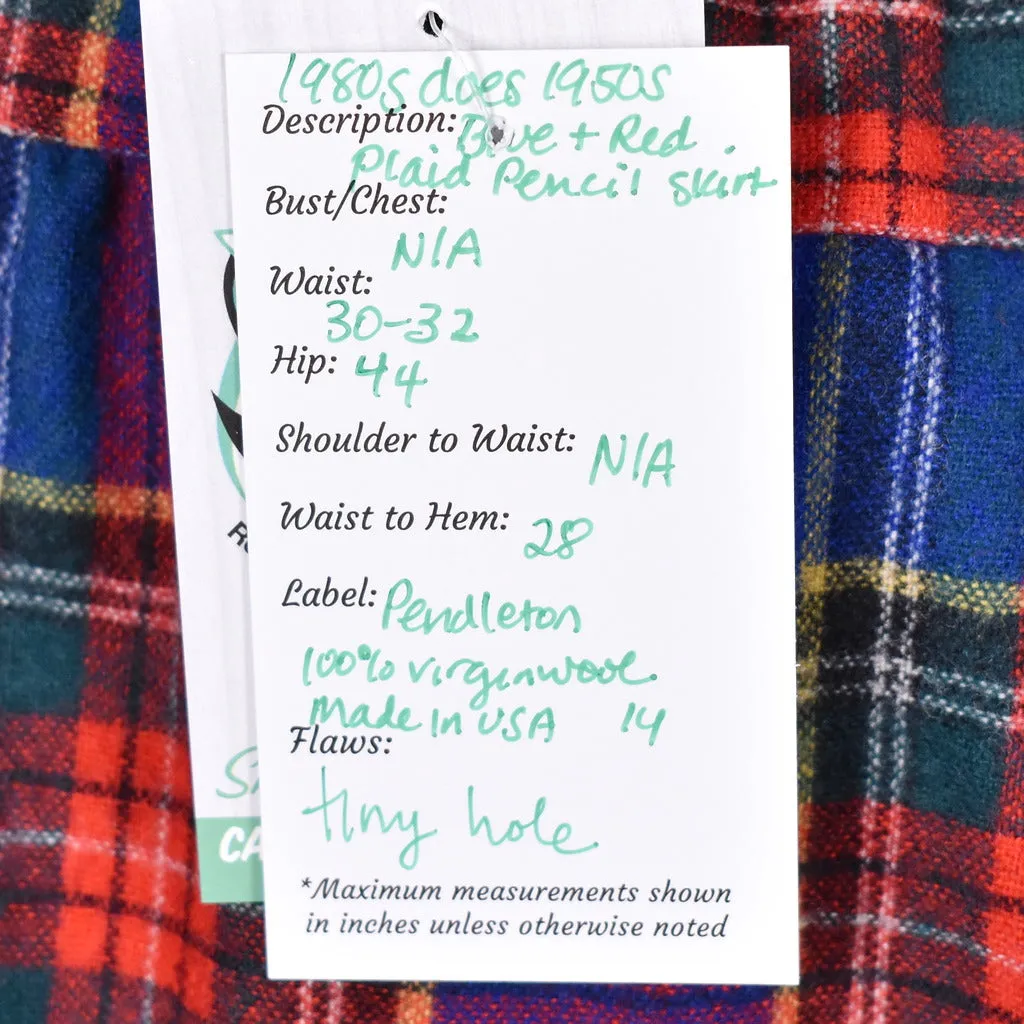 1980s does 1950s
Description: Blue + Red
Plaid Pencil Skirt
Bust/Chest:
N/A
Waist:
30-32
Hip: 44
Shoulder to Waist: N/A
Waist to Hem: 28
Label: Pendleton
100% virgin wool.
Made in USA 14
Flaws:
tiny hole
*Maximum measurements shown
in inches unless otherwise noted